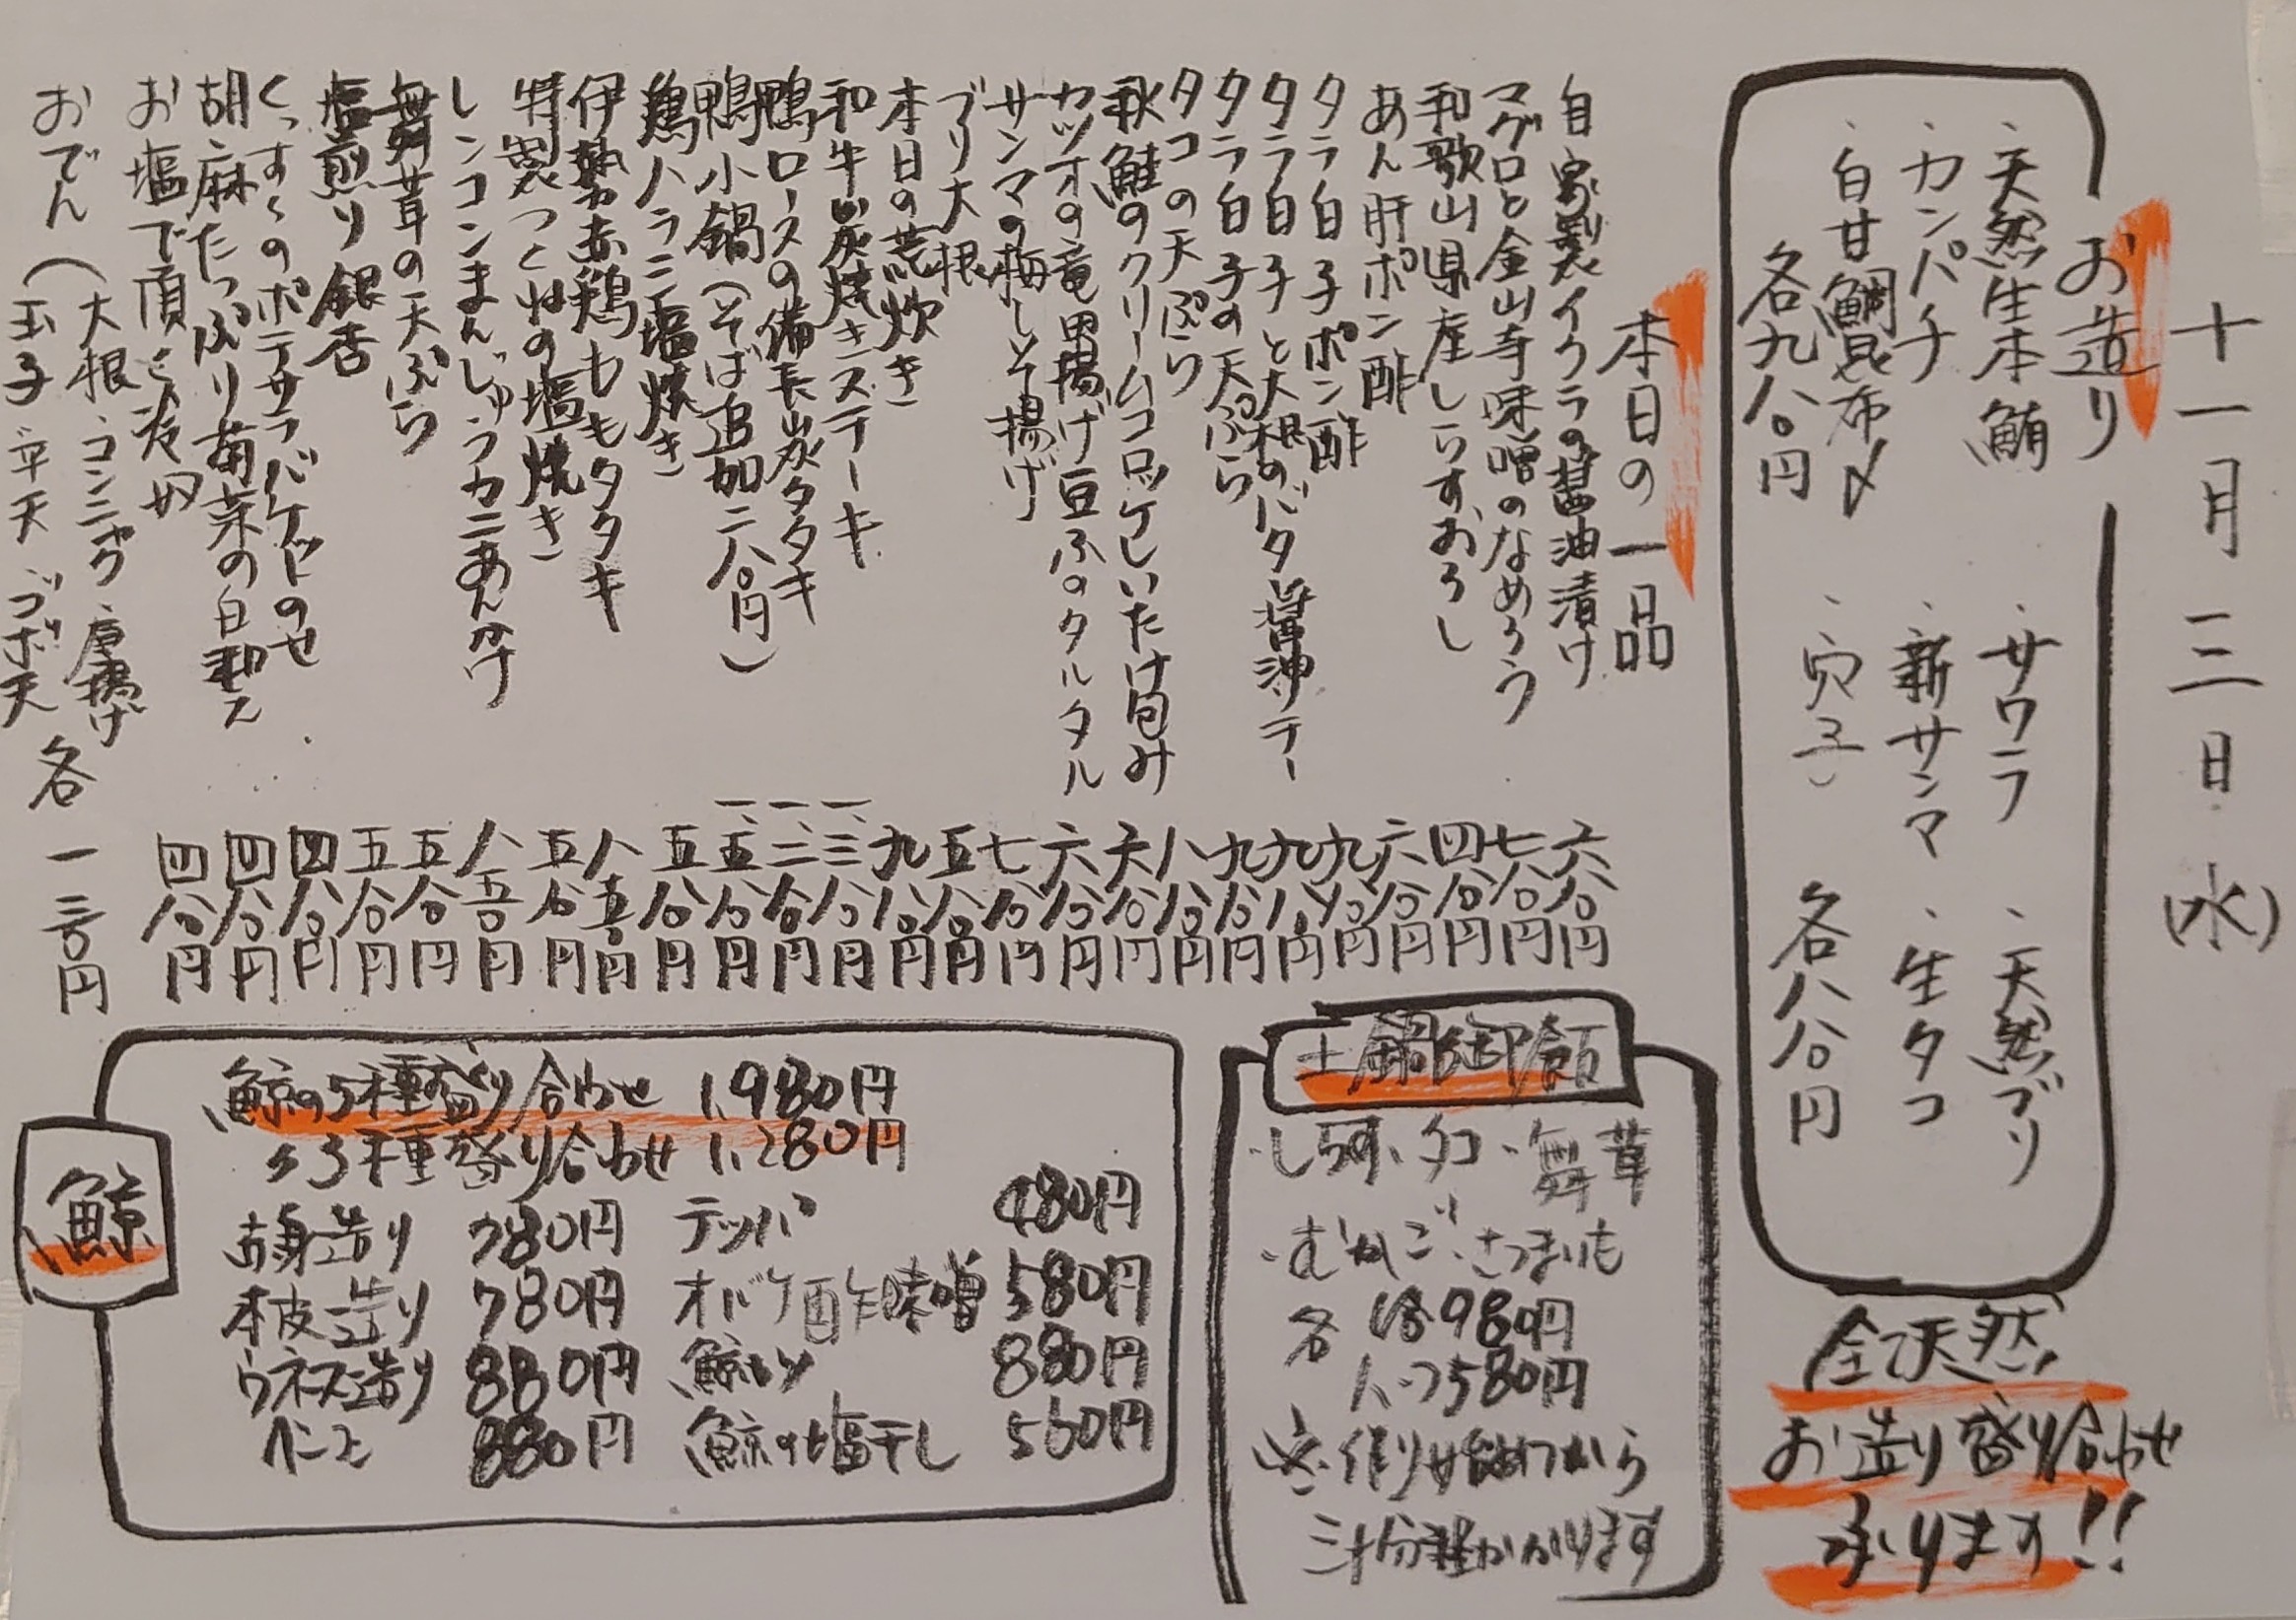 十一月一三日(水)
お造り
・天然生本鮪 ・サワラ ・天然ブリ
・カンパチ ・新サンマ ・生タコ
・白甘鯛昆布〆 ・穴子
各九八〇円 各八八〇円
全て天然
お造り盛り合わせ
承ります!!
本日の一品
自家製イクラの醤油漬け 六八〇円
マグロと金山寺味噌のなめろう 七八〇円
和歌山県産しらすおろし 四八〇円
あん肝ポン酢 六八〇円
タラ白子ポン酢 九八〇円
タラ白子と大根のバタ醤油ソテー 九八〇円
タラ白子の天ぷら 九八〇円
タコの天ぷら 八八〇円
秋鮭のクリームコロッケしいたけ包み 六八〇円
カツオの竜田揚げ豆ふのタルタル 六八〇円
サンマの梅しそ揚げ 七八〇円
ブリ大根 五八〇円
本日の荒炊き 九八〇円
和牛い炭焼きステーキ 一、三八〇円
鴨ロースの備長炭タタキ 一、二八〇円
鴨小鍋(そば追加二八〇円) 一、五八〇円
鶏ハラミ塩焼き 五八〇円
伊勢赤鶏ももタタキ 八五〇円
特製つくねの塩焼き 五八〇円
レンコンまんじゅうカニあんかけ 八五〇円
舞茸の天ぷら 五八〇円
塩煎り銀杏 五八〇円
くっすくのポテサラバケットのせ 四八〇円
胡麻たっぷり菊菜の白和え 四八〇円
お塩で頂く冷奴 四八〇円
おでん(大根・コンニャク・厚揚げ
玉子・平天・ゴボ天 各一三〇円
土鍋御飯
・しらす・タコ・舞茸
・むかご・さつまいも
各 1合980円
ハーフ580円
※作り始めてから
三十分程かかります
鯨
鯨の5種盛り合わせ 1,980円
〃3種盛り合わせ 1,280円
赤身造り 780円 テッパ 480円
本皮造り 780円 オバケ酢味噌 580円
ウネス造り 880円 鯨カツ 880円
ベーコン 880円 鯨の塩干し 560円